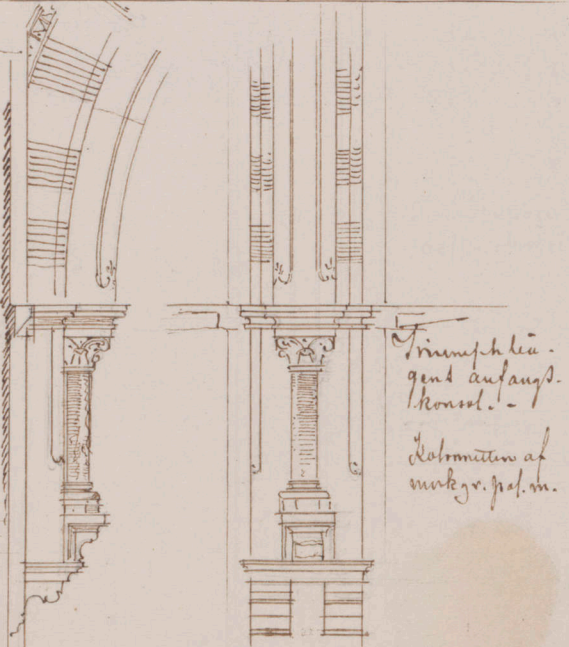 Triumphbå-
gens anfangs-
konsol. -
Kolonnetten af
mörkgr. pol. m.